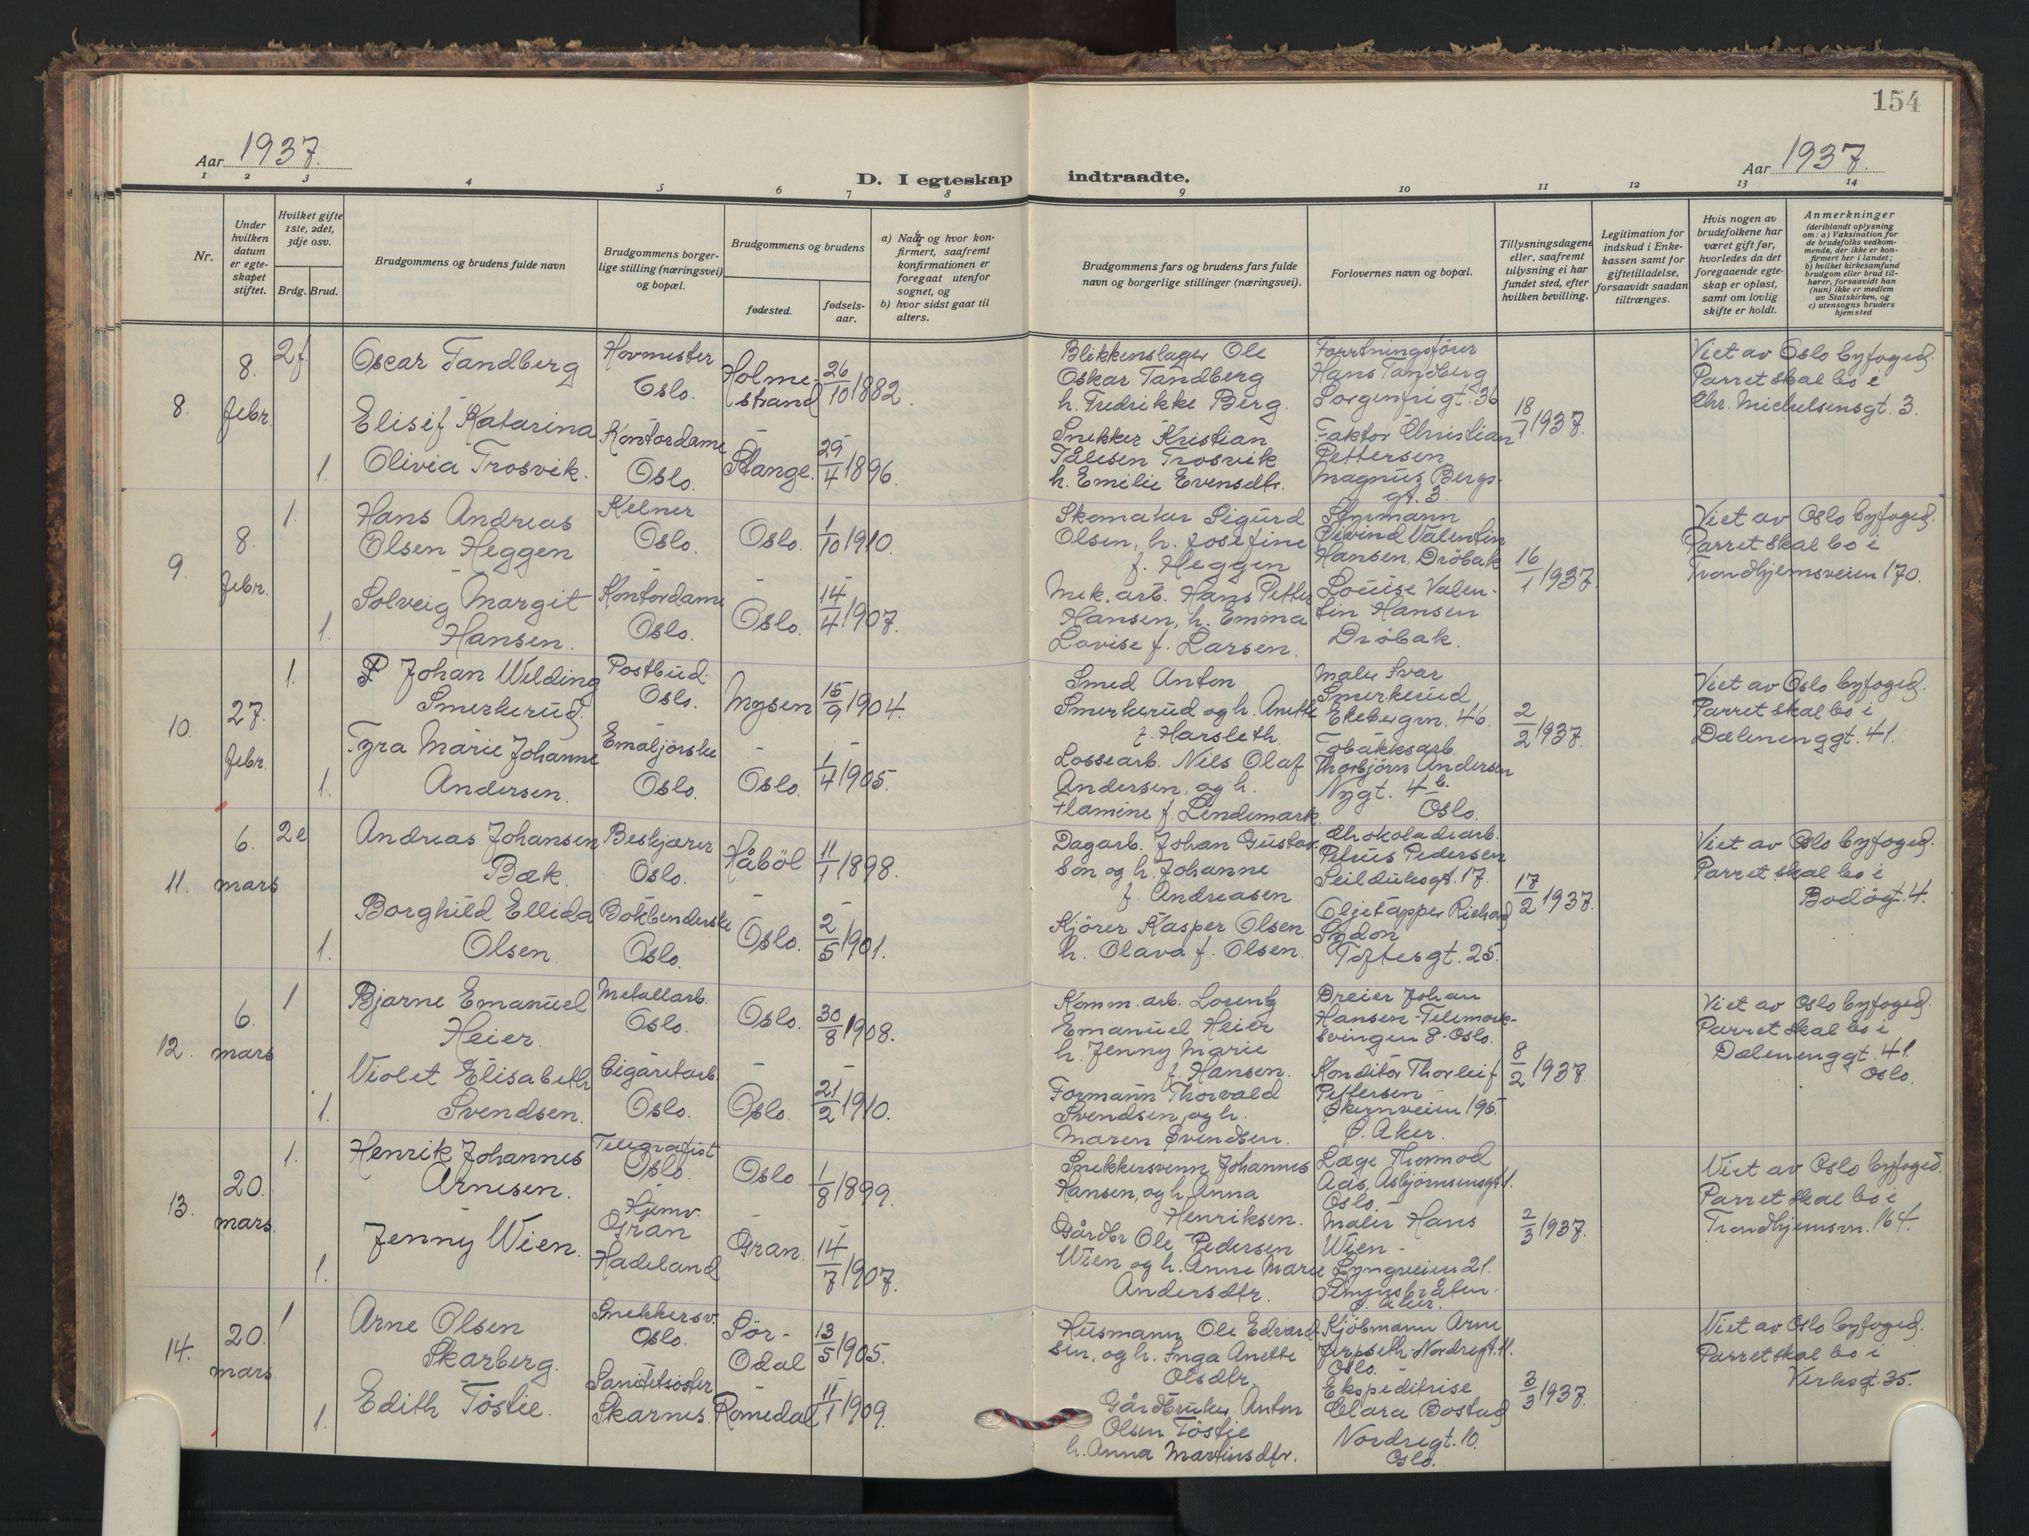 154
Aar 1937.
Aar 1937.
D. I egteskap indtraadte.
1 2 3 4 5 6 7 8 9 10 11 12 13 14
Nr.
Under hvilken datum er egteskapet stiftet.
Hvilket gifte 1ste, 2det, 3dje osv.
Brdg. Brud.
Brudgommens og brudens fulde navn
Brudgommens borgerlige stilling (næringsvei) og bopæl.
Brudgommens og brudens
fødested.
fødselsaar.
a) Naar og hvor konfirmert, saafremt konfirmationen er foregaat utenfor sognet, og
b) hvor sidst gaat til alters.
Brudgommens fars og brudens fars fulde navn og borgerlige stillinger (næringsvei).
Forlovernes navn og bopæl.
Tillysningsdagene eller, saafremt tillysning ei har fundet sted, efter hvilken bevilling.
Legitimation for indskud i Enkekassen samt for giftetilladelse, forsaavidt saadan tiltrænges.
Hvis nogen av brudefolkene har været gift før, hvorledes da det foregaaende egteskap er opløst, samt om lovlig skifte er holdt.
Anmerkninger
(deriblandt oplysning om: a) Vaksination for de brudefolks vedkommende, der ikke er konfirmert her i landet;
b) hvilket kirkesamfund brudgom eller brud tilhører, forsaavidt han (hun) ikke er medlem av Statskirken, og
c) utensogns bruders hjemsted
8.
8. febr.
2f
Oscar Tandberg
Hovmester
Oslo.
Holmestrand
26/10 1882.
Elisif Katarina
Olivia Trosvik.
1.
Kontordame
Oslo.
Stange.
29/4 1896.
Blikkenslager Ole
Oskar Tandberg
h. Fredrikke Berg.
Snekker Kristian
Tålesen Trosvik
h. Emilie Evensdtr.
Forretningsfører
Hans Tandberg
Sorgenfrigt. 36
Faktor Christian
Pettersen
Magnus Bergs
gt. 3.
18/1 1937.
Viet av Oslo byfoged.
Parret skal bo i
Chr. Michelsensgt. 3.
9.
8. febr.
1.
Hans Andreas
Olsen Heggen
Kelner
Oslo.
Oslo.
1/10 1910.
Solveig Margit
Hansen.
1.
Kontordame
Oslo.
Oslo.
14/4 1907.
Skomaker Sigurd
Olsen, h. Josefine
f. Heggen
Mek. arb. Hans Petter
Hansen, h. Emma
Lovise f. Larsen.
Styrmann
Øivind Valentin
Hansen, Drøbak
Louise Valen-
tin Hansen
Drøbak.
16/1 1937.
Viet av Oslo byfoged.
Parret skal bo i
Trondhjemsveien 170.
10.
27. febr.
1.
Johan Wilding
Smerkerud.
Postbud.
Oslo.
Mysen
15/9 1904.
Tyra Marie Johanne
Andersen.
1.
Emaljørske
Oslo.
Oslo.
1/4 1905.
Smed Anton
Smerkerud og h. Anette
f. Harsleth.
Lossearb. Nils Olaf
Andersen, og h.
Flamine f. Lindemark.
Maler Ivar
Smerkerud
Ekebergvn. 46.
Tobakksarb.
Thorbjørn Andersen
Nygt. 4 b.
Oslo.
2/2 1937.
Viet av Oslo byfoged.
Parret skal bo i
Dælenenggt. 41.
11.
6. mars
2e
Andreas Johansen
Bæk.
Beskjærer
Oslo.
Håbøl
11/1 1898.
Borghild Ellida
Olsen.
1.
Bokbinderske
Oslo.
Oslo.
2/5 1901.
Dagarb. Johan Gustav-
son og h. Johanne
f. Andreasen
Kjører Kasper Olsen
h. Olava f. Olsen.
Chokoladearb.
Petrus Pedersen
Seilduksgt. 17.
Oljetapper Richard
Sydon
Toftesgt. 25.
17/2 1937.
Viet av Oslo byfoged.
Parret skal bo i
Bodøgt. 4.
12.
6. mars
1
Bjarne Emanuel
Heier.
Metallarb.
Oslo.
Oslo.
30/8 1908.
Violet Elisabeth
Svendsen.
1.
Cigaretarb.
Oslo.
Oslo.
21/2 1910.
Komm. arb. Lorentz
Emanuel Heier
h. Jenny Marie
f. Hansen.
Formann Thorvald
Svendsen, og h.
Maren Svendsen.
Dreier Johan
Hansen - Telemark-
svingen 8 - Oslo.
Konditor Thorleif
Pettersen
Økernveien 195.
Ø. Aker.
8/2 1937.
Viet av Oslo byfoged.
Parret skal bo i
Dælenenggt. 41.
Oslo.
13.
20. mars.
1.
Henrik Johannes
Arnesen.
Telegrafist
Oslo.
Oslo
1/8 1899.
Jenny Wien.
1.
Hjemv.
Gran
Hadeland
Gran.
14/7 1907.
Snekkersvenn Johannes
Hansen, og h. Anna
Henriksen.
Gårdbr Ole Pedersen
Wien og h. Anne Marie
Andersdtr.
Læge Thormod
Aas, Asbjørnsensgt 1.
Oslo.
Maler Hans
Wien -
Lyngveien 21.
Simensbråten.
Ø. Aker.
2/3 1937.
Viet av Oslo byfoged.
Parret skal bo i
Trondhjemsvn. 164.
14.
20. mars.
1
Arne Olsen
Skarberg.
Snekkersv.
Oslo.
Sør-
Odal
13/5 1905.
Edith Tøstie.
1.
Sanitetsøster
Skarnes.
Romedal
11/1 1909.
Husmann Ole Edvard
sen, og h. Inga Anette
Olsdtr.
Gårdbruker Anton
Olsen Tøstie
h. Anna Martinsdtr.
Kjøbmann Arne
Jerpseth - Nordregt. 11.
Oslo. -
Ekspeditrise
Clara Bostad
Nordregt. 10.
Oslo.
3/3 1937.
Viet av Oslo byfoged.
Parret skal bo i
Verksgt. 35.